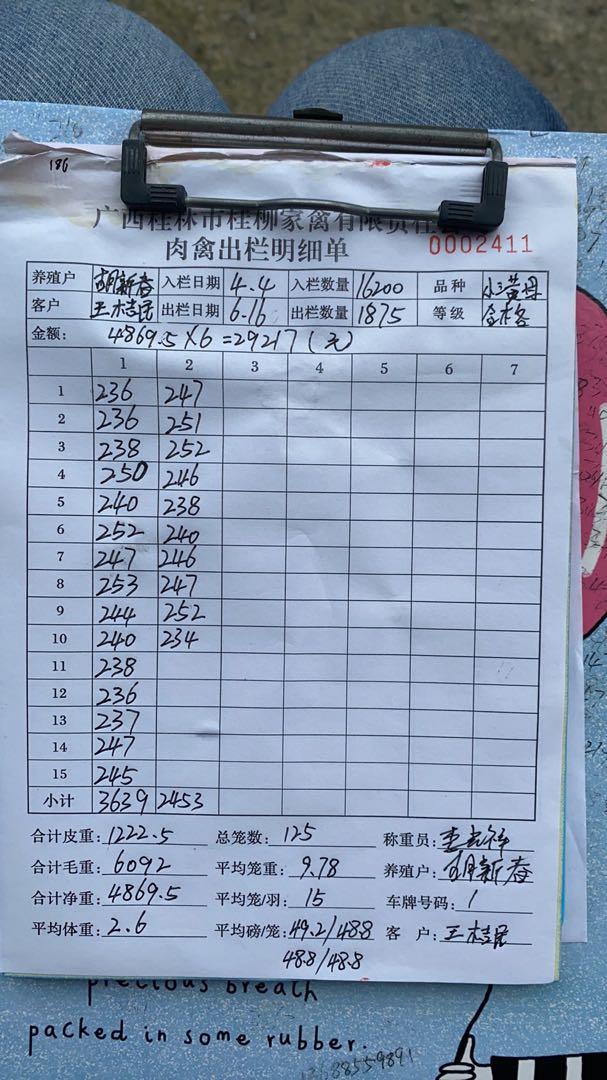 186
广西桂林市桂柳家禽有限责任公
肉禽出栏明细单 0002411
养殖户 胡新春 入栏日期 4.4 入栏数量 16200 品种 小黄母
客户 王桔民 出栏日期 6.16 出栏数量 1875 等级 合格
金额: 4869.5×6=29217(元)
1 2 3 4 5 6 7
1 236 247
2 236 251
3 238 252
4 250 246
5 240 238
6 252 240
7 247 246
8 253 247
9 244 252
10 240 234
11 238
12 236
13 237
14 247
15 245
小计 3639 2453
合计皮重: 1222.5 总笼数: 125 称重员:
合计毛重: 6092 平均笼重: 9.78 养殖户: 胡新春
合计净重: 4869.5 平均笼/羽: 15 车牌号码: /
平均体重: 2.6 平均磅/笼: 49.2/48.8 客 户: 王桔民
48.8/48.8
precious breath
packed in some rubber.